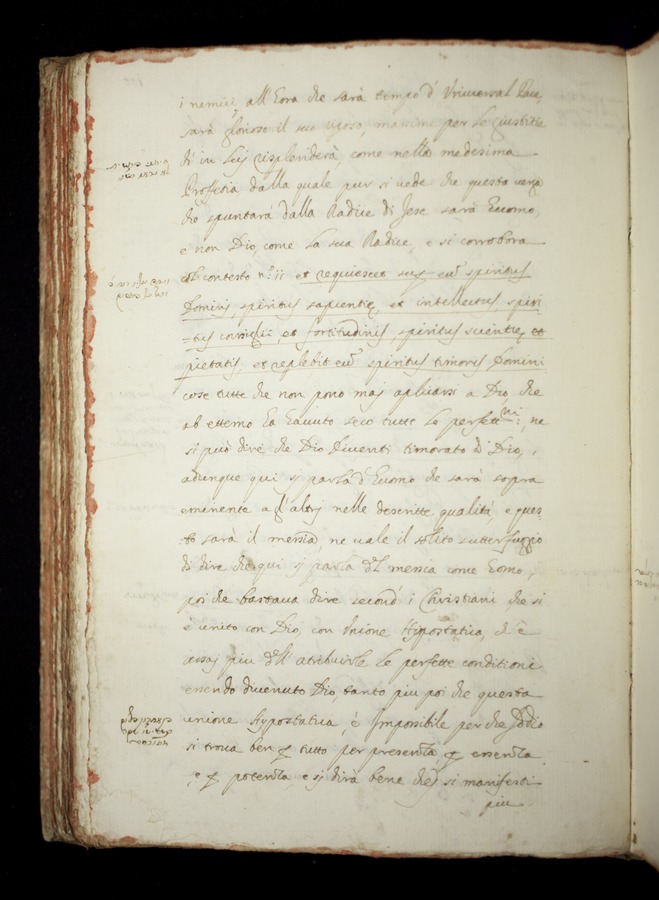 i nemici, all'Eora che sarà tempo d' Universal Pace,
sarà glorioso il suo riposo, massime per le giustitie
ch' in lui risplenderà, come nella medesima
Proffetia dalla quale pur si vede che questa verga
che spuntarà dalla Radice di Jese sarà Euomo,
e non Dio, come la sua Radice, e si corrobora
col contesto n.º 11 et requiescet sup. eum spiritus
Domini, spiritus sapientie, et intellectus, spiri
-tus consilii, et fortitudinis, spiritus scientie, et
pietatis, et replebit eum spiritus timoris Domini
cose tutte che non pono mai aplicarsi a Dio, che
ab etterno ha hauuto seco tutte le perfett.ni, ne
si può dire che Dio diventi timorato di Dio,
adunque qui si parla d' Euomo che sarà sopra
eminente a gl'altri nelle descritte qualità, e ques-
to sarà il messia, ne vale il solito sutterfuggio
di dire che qui si parla del messia come Eomo,
poi che bastava dire second' i Christiani che si
è unito con Dio, con Unione Hypostatica, ch' è
assai piu dell' atribuirle le perfette conditioni
essendo divenuto Dio, tanto piu poi che questa
unione Hypostatica, è Impossibile per che Iddio
si trova ben per tutto per presenza per essenza
e per potenza e si dirà bene che si manifesti
piu